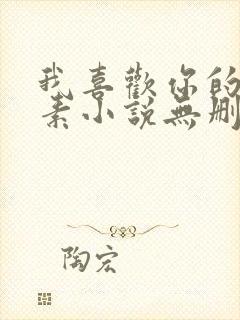 我喜歡你的
素小說無刪
陶宏